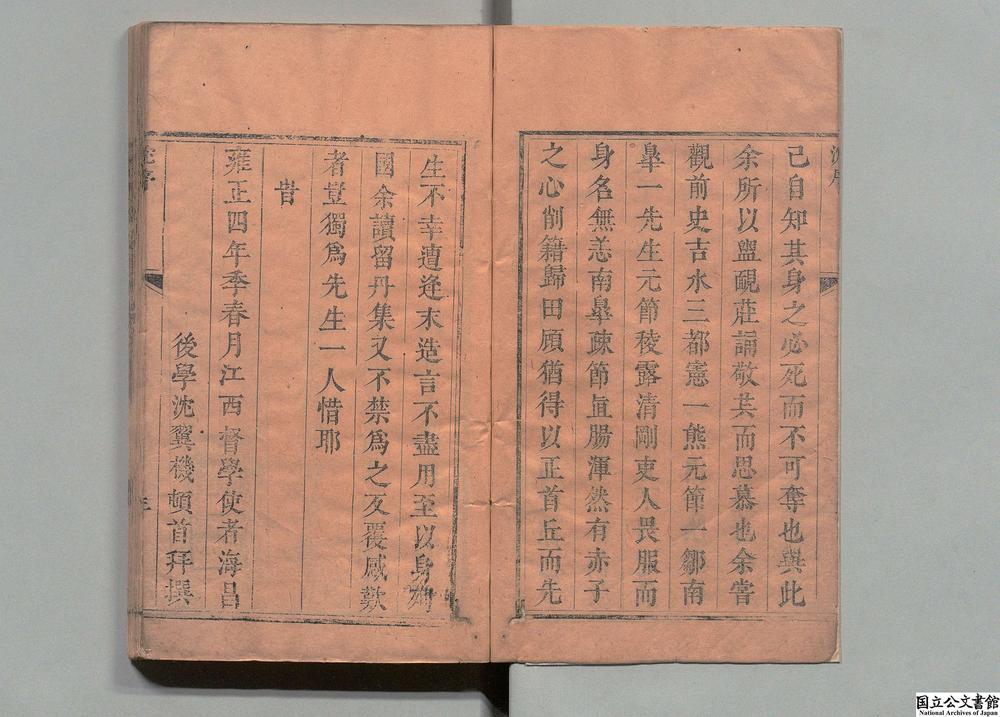 己自知其身之必死而不可奪也與此
余所以盥靧莊誦敬其而思慕也余嘗
觀前史吉水三都憲一熊元節一鄒南
皋一先生元節稜露清剛吏人畏服而
身名無恙南皋疎節直腸渾然有赤子
之心削籍歸田頋猶得以正首丘而先
生不幸遭逢末造言不盡用至以身殉
國余讀留丹集又不禁爲之反覆感歎
者豈獨爲先生一人惜耶
旹
雍正四年季春月江西督學使者海昌
後學沈翼機頓首拜撰
沈序
国立公文書館
National Archives of Japan